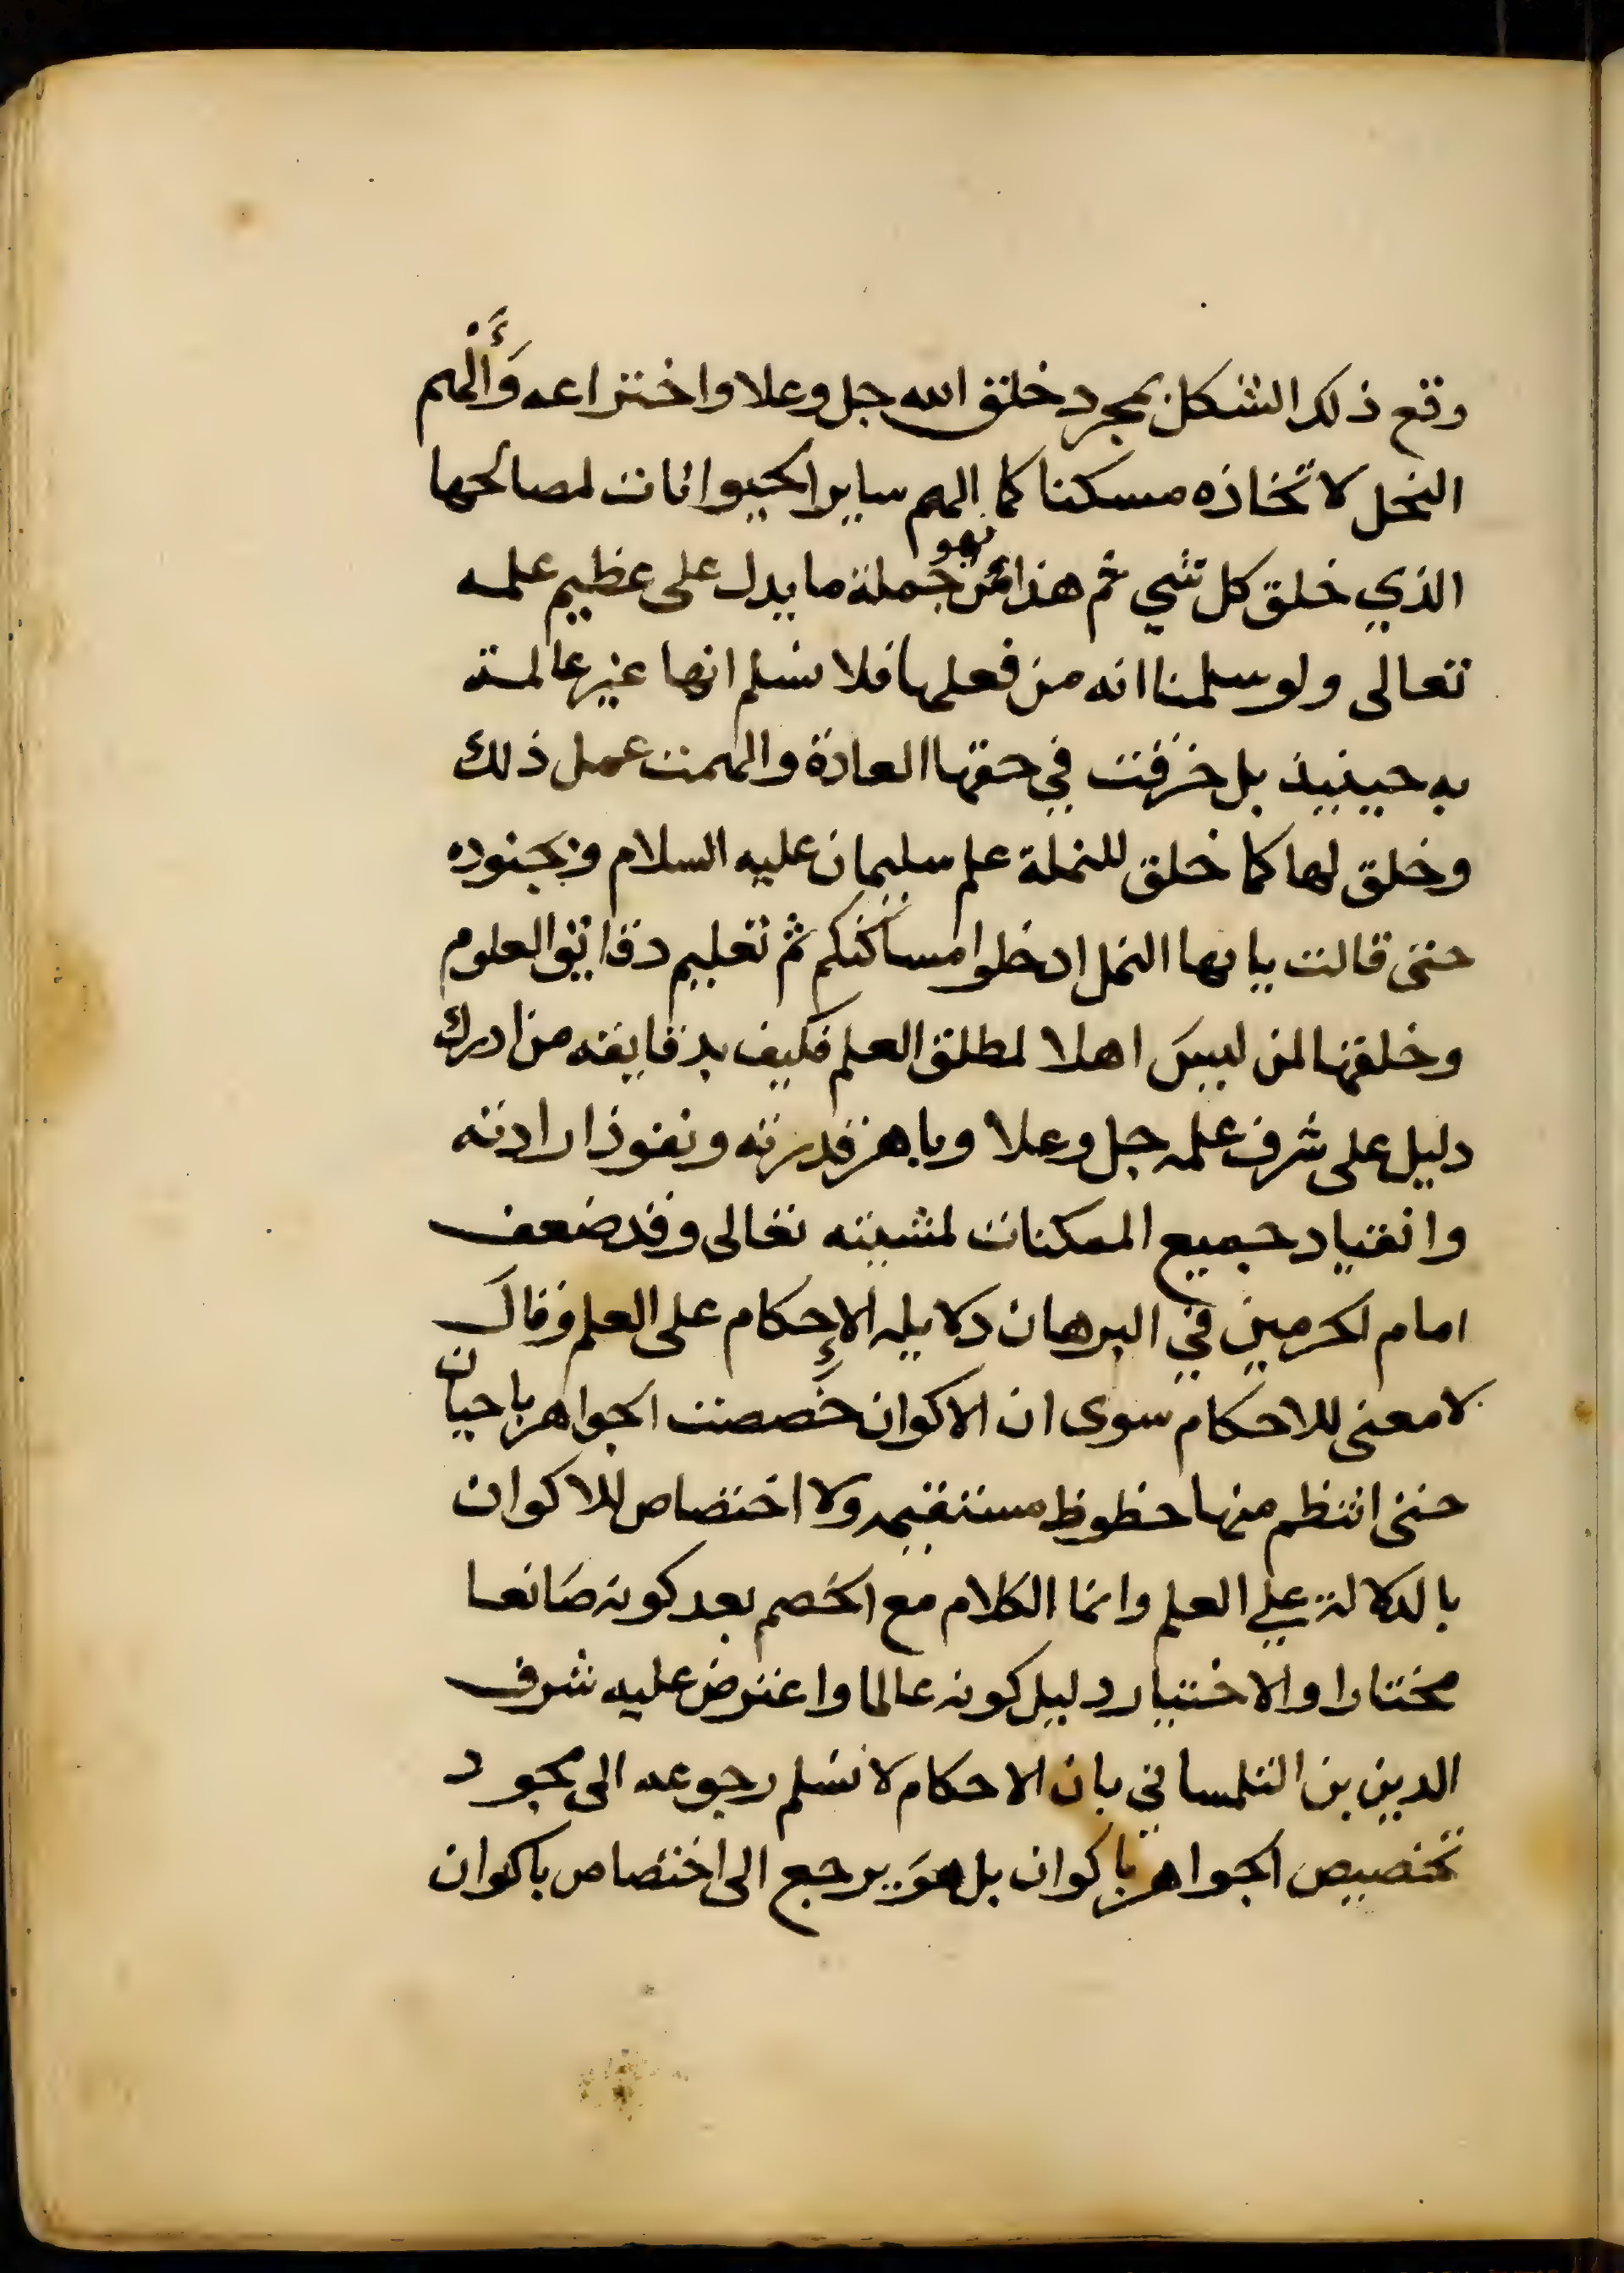 وقع ذلك الشكل بمجرد خلق الله جل وعلا واختراعه وَأَلْهم
النحل لاتخاذه مسكنا كما الهم ساير الحيوانات لمصالحها
الذي خلق كل شي ثم هذا فهو من جملة ما يدل على عظيم علمه
تعالى ولو سلمنا انه من فعلها فلا نسلم انها غير عالمة
به حينيذ بل خرقت في حقها العادة والهمت عمل ذلك
وخلق لها كما خلق للنملة علم سليمان عليه السلام وبجنوده
حتى قالت يا يها النمل ادخلوا مساكنكم ثم تعليم دقايق العلوم
وخلقها لمن ليس اهلا لمطلق العلم فكيف بدقايقه من ادرك
دليل على شرف علمه جل وعلا وباهر قدرته ونفوذ ارادته
وانقياد جميع الممكنات لمشيته تعالى وقد ضعف
امام الحرمين في البرهان دلايله الإحكام على العلم وقال
لا معنى للاحكام سوى ان الاكوان خَصصت الجواهر باحيان
حتى انتظم منها خطوط مستقيمه ولا اختصاص للاكوان
بالدلالة علي العلم وانما الكلام مع الخصم بعد كونه صانعا
مختارا والاختيار دليل كونه عالما واعترض عليه شرف
الدين بن التلمساني بان الاحكام لا نسلم رجوعه الى مجرد
تخصيص الجواهر باكوان بل هو يرجع الى اختصاص باكوان